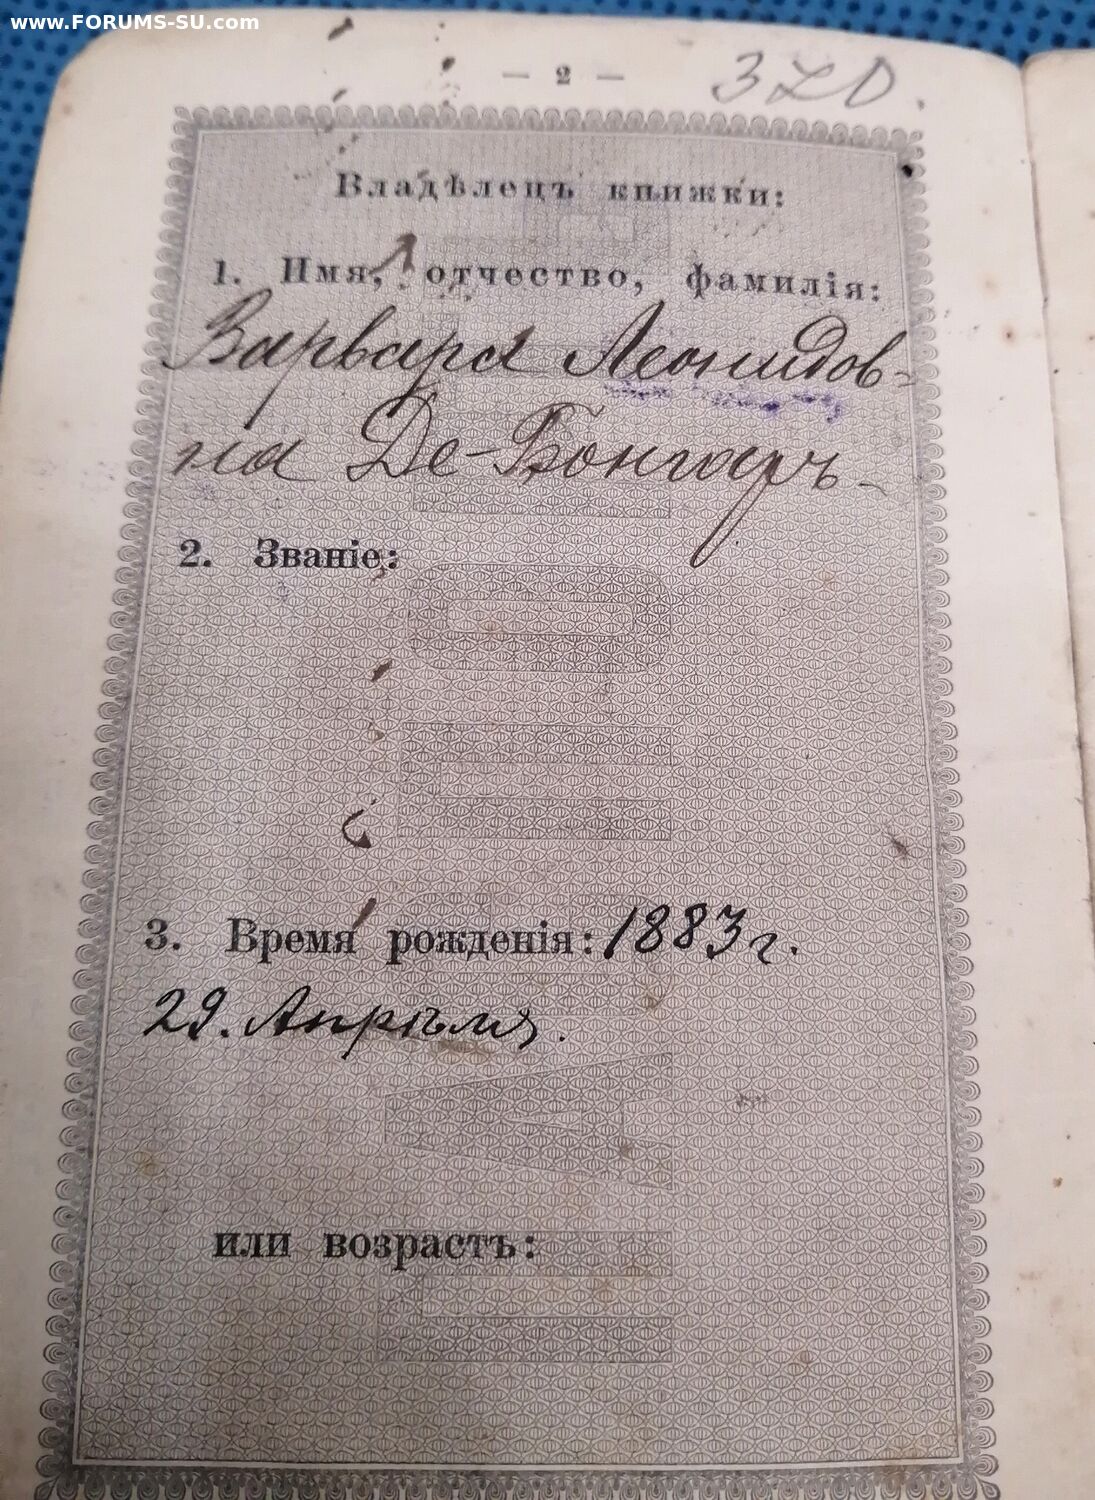 www.FORUMS-SU.com
— 2 —
Владѣлецъ книжки:
1. Имя, отчество, фамилія:
Варвара Леонидов-
на Де-Бонгаръ
2. Званіе:
3. Время рожденія: 1883 г.
29. Апрѣля.
или возрастъ: